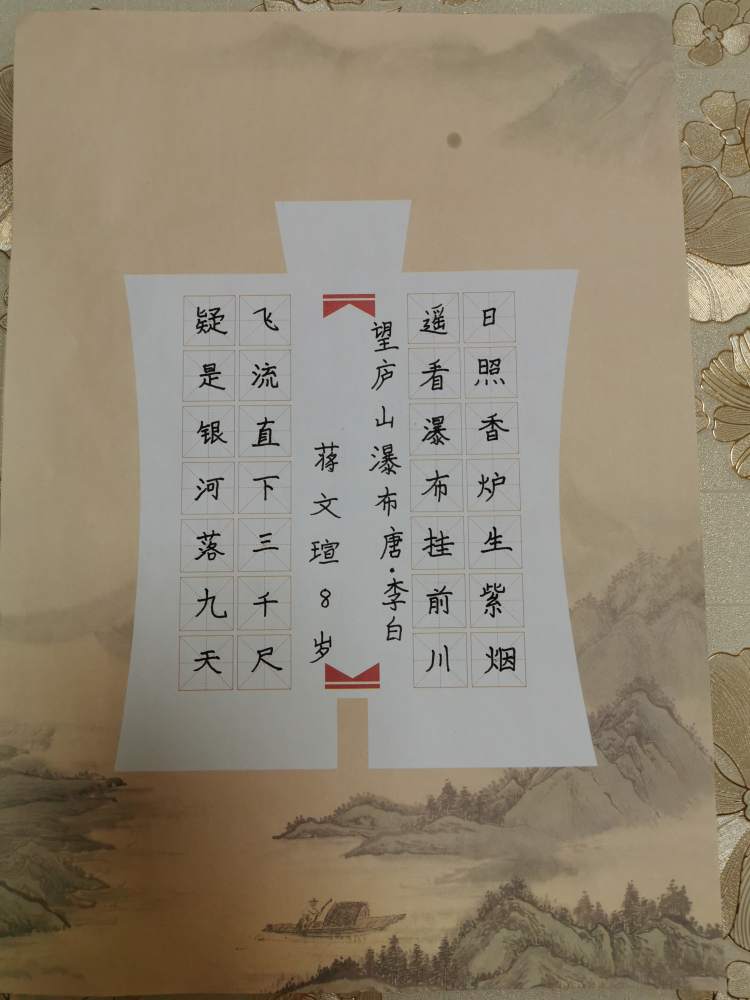 日照香炉生紫烟
遥看瀑布挂前川
望庐山瀑布唐·李白
蒋文瑄8岁
飞流直下三千尺
疑是银河落九天